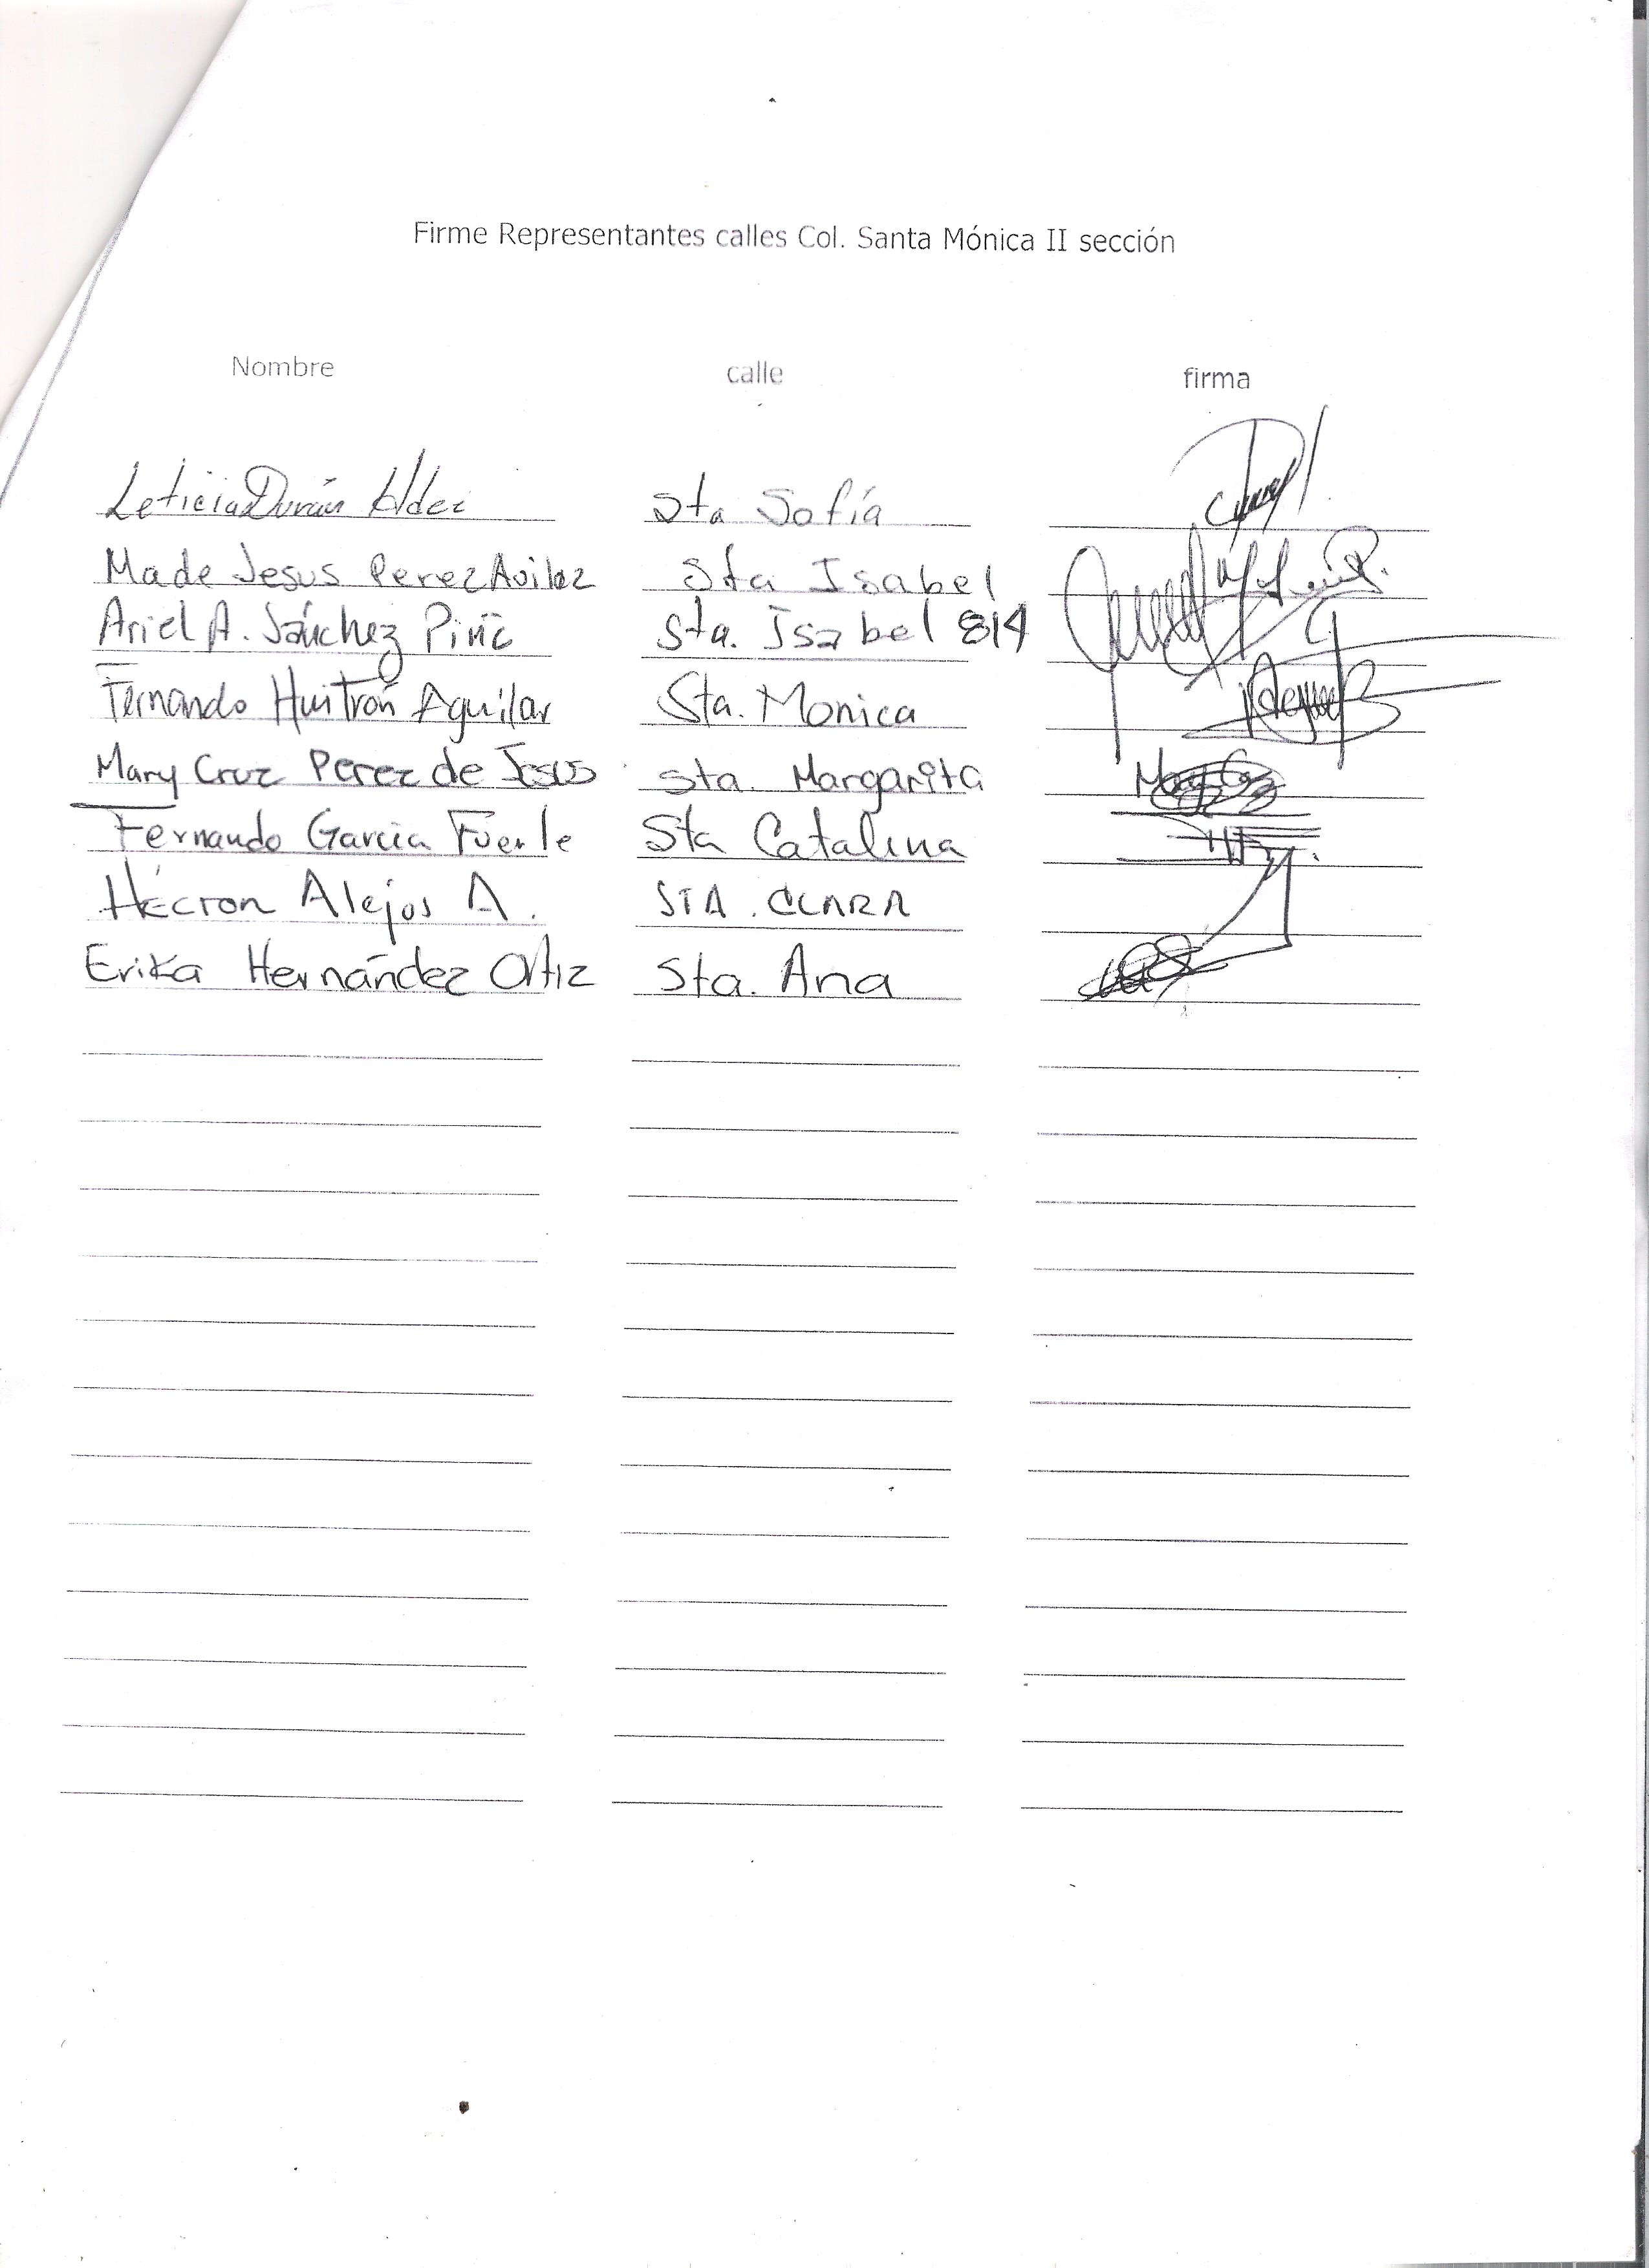 Firme Representantes calles Col. Santa Mónica II sección
Nombre calle firma
Leticia Durán Sta Sofía
Ma de Jesus Perez Sta Isabel
Ariel A. Sánchez Sta. Isabel 814
Fernando Huitrón Aguilar Sta. Monica
Mary Cruz Perez de Jesus Sta. Margarita
Fernando Garcia Sta Catalina
Alejos A. STA. CLARA
Erika Hernández Ortiz Sta. Ana